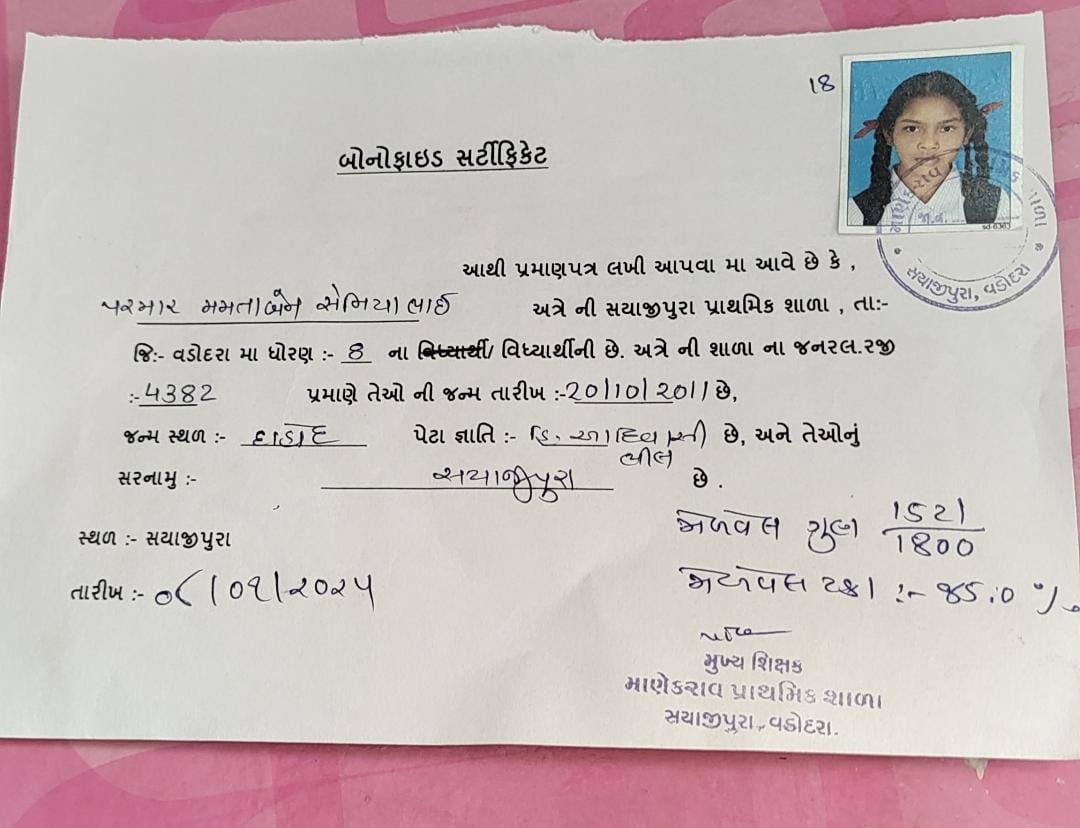 18
બોનોફાઇડ સર્ટીફિકેટ
આથી પ્રમાણપત્ર લખી આપવા મા આવે છે કે ,
પરમાર મમતાબેન સેમિયાભાઈ અત્રે ની સયાજીપુરા પ્રાથમિક શાળા , તાઃ-
જિઃ- વડોદરા મા ધોરણ :- 8 ના વિધ્યાર્થી/ વિધ્યાર્થીની છે. અત્રે ની શાળા ના જનરલ.રજી
:-4382 પ્રમાણે તેઓ ની જન્મ તારીખ :-20/10/2011 છે,
જન્મ સ્થળ :- પેટા જ્ઞાતિ :- હિ. આદિવાસી છે, અને તેઓનું
ભીલ
સરનામુ :- સયાજીપુરા છે .
સ્થળ :- સયાજીપુરા
તારીખ :-
મેળવેલ ગુણ 1521
1800
મેળવેલ ટકા :-
મુખ્ય શિક્ષક
માણેકરાવ પ્રાથમિક શાળા
સયાજીપુરા, વડોદરા.
સયાજીપુરા, વડોદરા
sd-6363